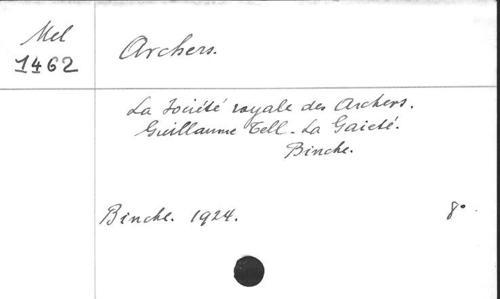 Mel
1462
Archers.
La Société royale des Archers.
Guillaume Tell - La Gaieté.
Binche.
Binche. 1924.
8°